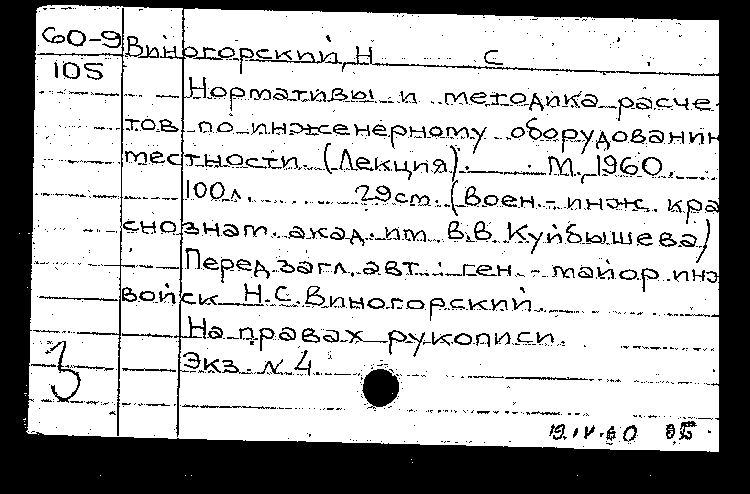 60-9 Виногорский, Н С
105
Нормативы и методика расче-
тов по инженерному оборудовани
местности. (Лекция). М., 1960.
100л. 29см. (Воен.-инж. кра
снознам. акад. им В.В. Куйбышева)
Перед загл. авт.: ген.-майор инж
войск Н.С. Виногорский.
На правах рукописи.
Экз. N 4.
З
19.IV.60